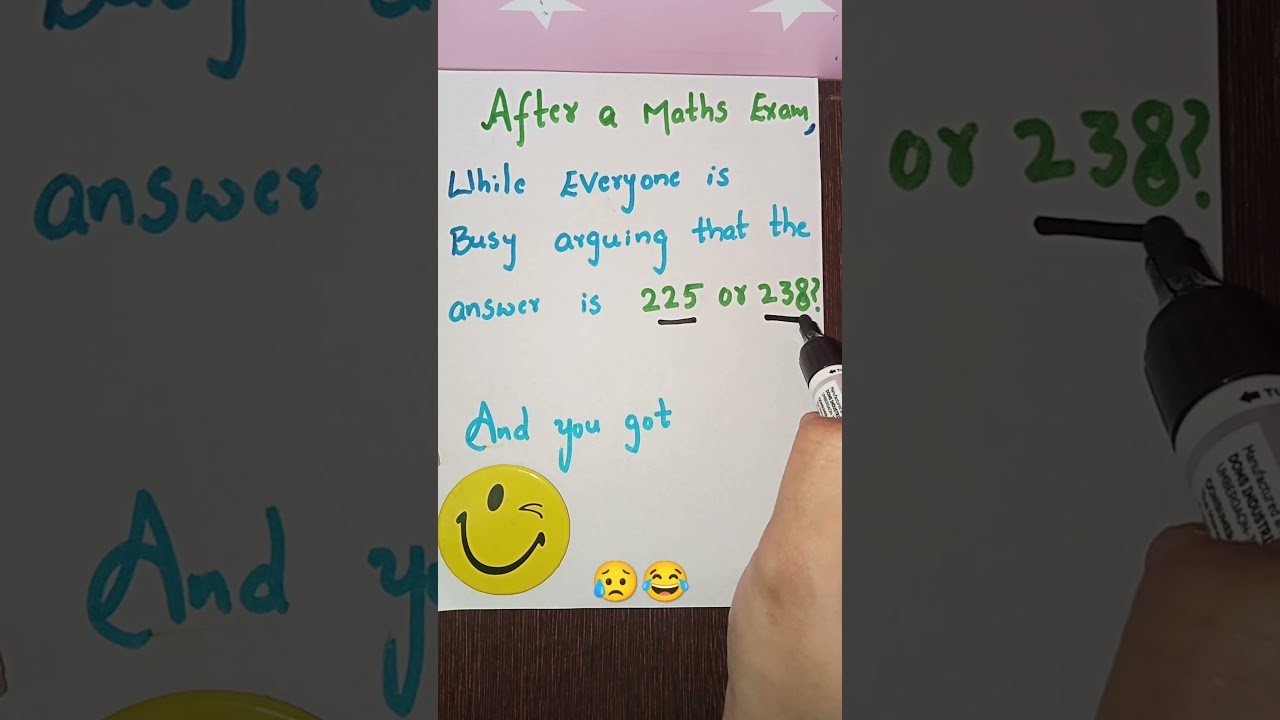 After a Maths Exam,
While Everyone is
Busy arguing that the
answer is 225 or 238?
And you got